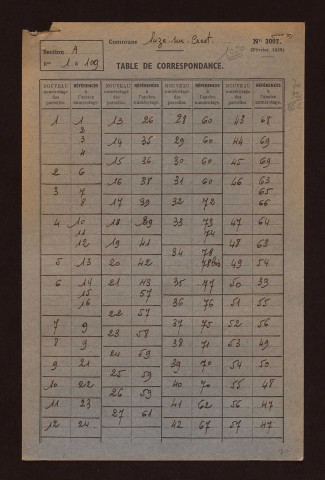 Commune Suze-sur-Crest.
Section A
Nos 1 à 109
No 3097
(Février, 1930)
TABLE DE CORRESPONDANCE.
NOUVEAU numérotage des parcelles. RÉFÉRENCES à l'ancien numérotage. NOUVEAU numérotage des parcelles. RÉFÉRENCES à l'ancien numérotage. NOUVEAU numérotage des parcelles. RÉFÉRENCES à l'ancien numérotage. NOUVEAU numérotage des parcelles. RÉFÉRENCES à l'ancien numérotage.
1 1 13 26 28 60 43 68
2
3 14 35 29 60 44 69
4 15 36 30 60 45 69
2 6 16 38 31 60 46 63
3 7 65
8 17 39 32 72 66
4 10 18 39 33 73 47 64
11 74
12 19 41 34 78 48 63
5 13 20 42 78bis 49 54
6 14 21 43 35 77 50 33
15 57
16 22 57 36 76 51 55
7 9 23 58 37 75 52 56
8 9 24 59 38 71 53 49
9 21 25 59 39 70 54 50
10 22 26 59 40 70 55 48
11 23 27 61 41 62 56 47
12 24 42 67 57 47